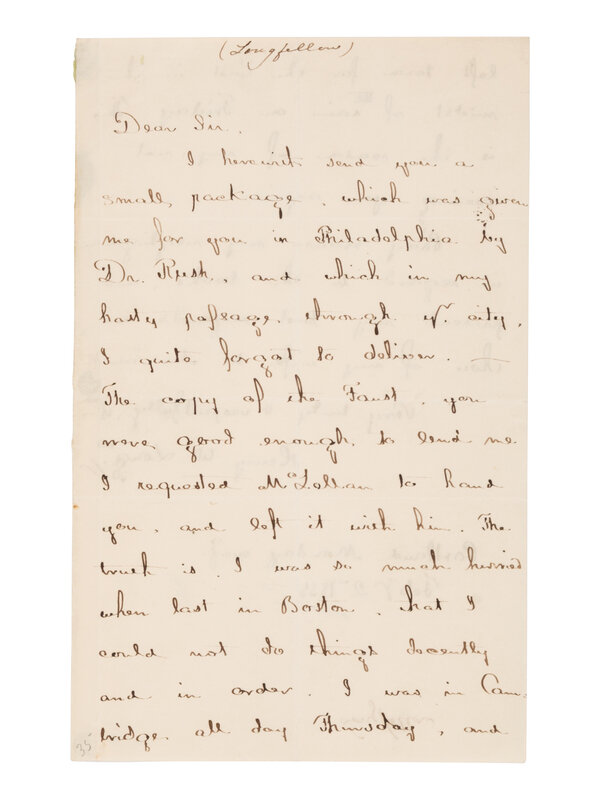 (Longfellow)
Dear Sir,
I herewith send you a
small package, which was given
me for you in Philadelphia by
Dr. Rush, and which in my
hasty passage through yr. city,
I quite forgot to deliver. —
The copy of the Faust, you
were good enough to lend me
I requested McLellan to hand
you, and left it with him. The
truth is, I was so much hurried
when last in Boston, that I
could not do things decently
and in order. I was in Cam-
bridge all day Thursday, and
35